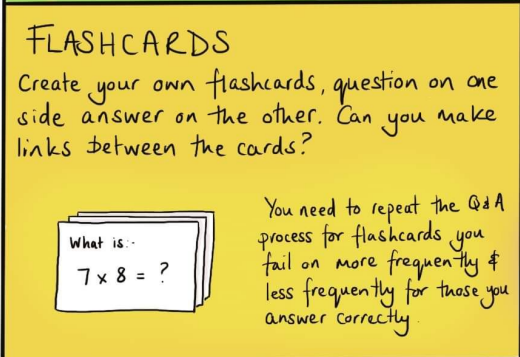 FLASHCARDS
Create your own flashcards, question on one
side answer on the other. Can you make
links between the cards?
What is:-
7 x 8 = ?
You need to repeat the Q&A
process for flashcards you
fail on more frequently &
less frequently for those you
answer correctly.